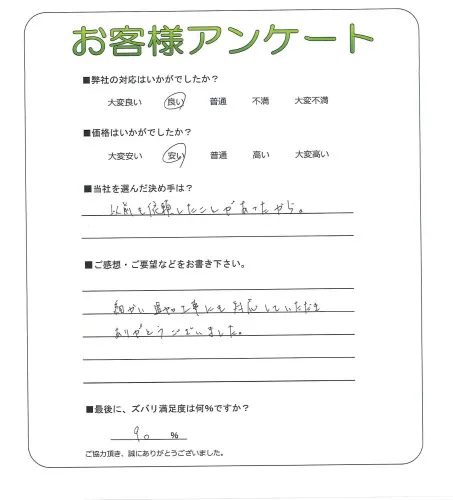 お客様アンケート
■弊社の対応はいかがでしたか？
大変良い 良い 普通 不満 大変不満
■価格はいかがでしたか？
大変安い 安い 普通 高い 大変高い
■当社を選んだ決め手は？
以前も依頼したことがあったから。
■ご感想・ご要望などをお書き下さい。
細かい 工事にも対応していただき
ありがとうございました。
■最後に、ズバリ満足度は何%ですか？
90 %
ご協力頂き、誠にありがとうございました。